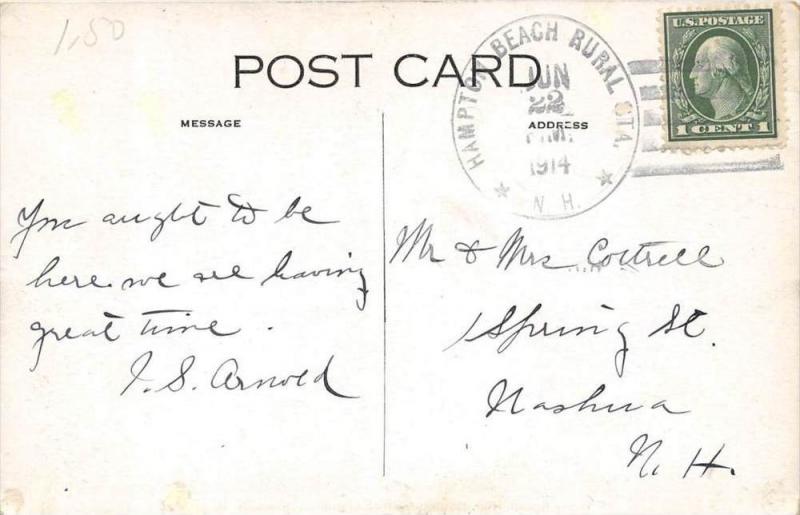 1.50
POST CARD
HAMPTON BEACH RURAL STA.
JUN
22
P.M.
1914
N. H.
U.S. POSTAGE
1 CENT 1
MESSAGE
You aught to be
here. we are having
great time.
J. S. Arnold
ADDRESS
Mr & Mrs Cottrell
Spring St.
Nashua
N. H.